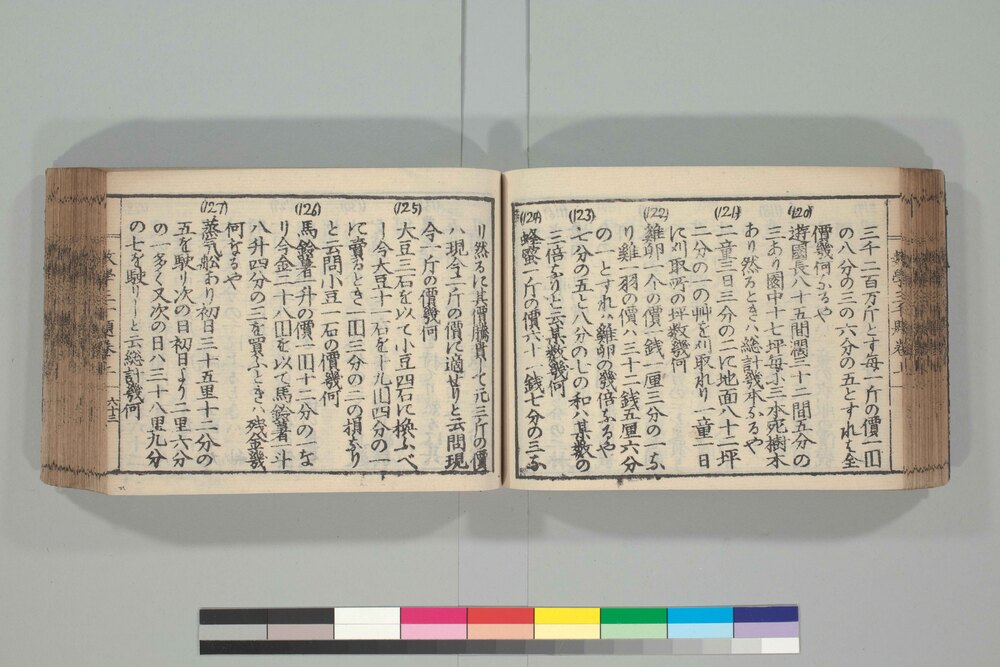 三千二百万斤とす毎一斤の價一圓
の八分の三の六分の五とすれば全
價幾何なるや
(120)
遊園長八十五間闊三十二間五分の
三あり園中十七坪毎小三本死樹木
あり然るときハ總計幾本なるや
(121)
二童三日三分の二に地面八十二坪
二分の一の艸を刈取れり一童一日
に刈取所の坪数幾何
(122)
雞卵一个の價一銭一厘三分の一な
り雞一羽の價ハ三十二銭五厘六分
の一とすれハ雞卵の幾倍なるや
(123)
七分の五と八分の七の和ハ某数の
三倍なりと云某数幾何
(124)
蜂蜜一斤の價六十一銭七分の三な
り然るに其價騰貴して元三斤の價
ハ現今二斤の價に適せりと云問現
今一斤の價幾何
(125)
大豆三石を以て小豆四石に換ふべ
し今大豆十一石を十九圓四分の一
に賣るときハ一圓三分の二の損なり
と云問小豆一石の價幾何
(126)
馬鈴薯一升の價一圓十二分の一な
り今金二十八圓を以て馬鈴薯一斗
八升四分の三を買ふときハ残金幾
何なるや
(127)
蒸气舩あり初日三十五里十二分の
五を駛り次の日初日より二里六分
の一多く又次の日ハ三十八里九分
の七を駛りしと云總計幾何
六十三